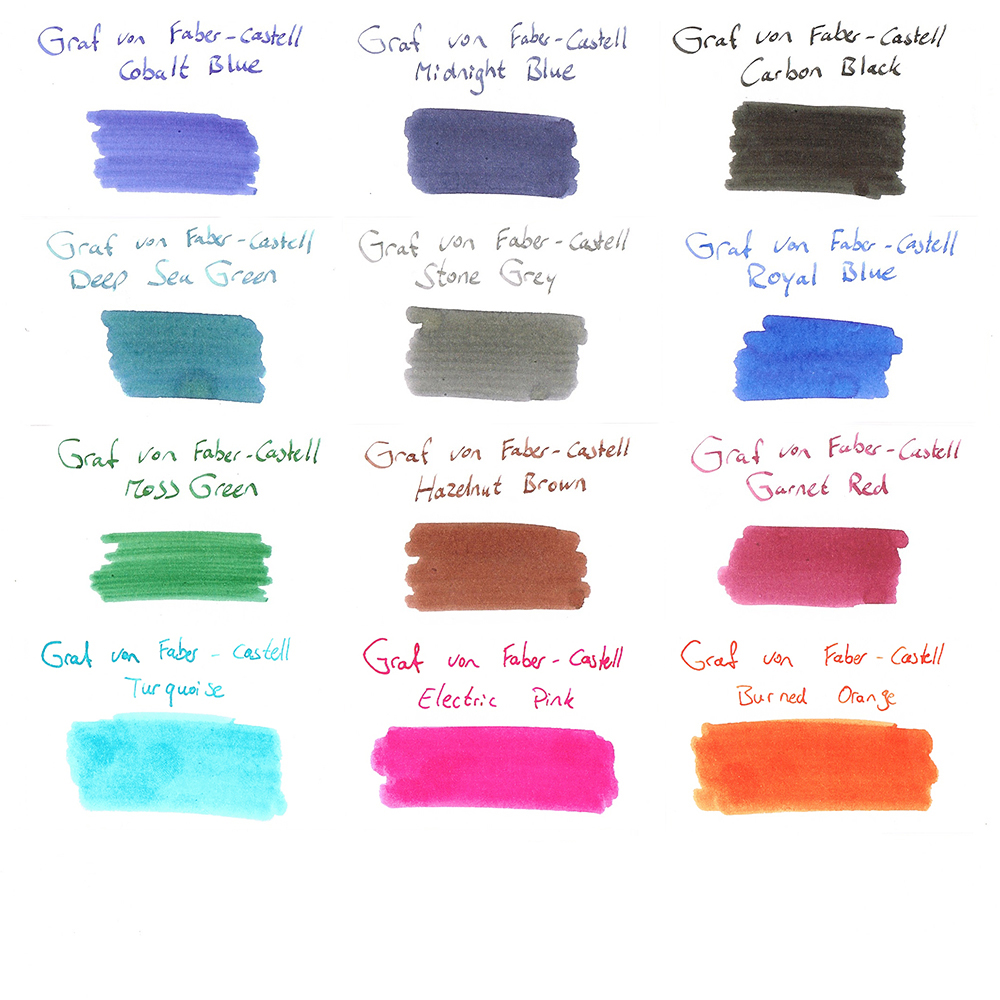 Graf von Faber-Castell
Cobalt Blue
Graf von Faber-Castell
Midnight Blue
Graf von Faber-Castell
Carbon Black
Graf von Faber-Castell
Deep Sea Green
Graf von Faber-Castell
Stone Grey
Graf von Faber-Castell
Royal Blue
Graf von Faber-Castell
Moss Green
Graf von Faber-Castell
Hazelnut Brown
Graf von Faber-Castell
Garnet Red
Graf von Faber-Castell
Turquoise
Graf von Faber-Castell
Electric Pink
Graf von Faber-Castell
Burned Orange